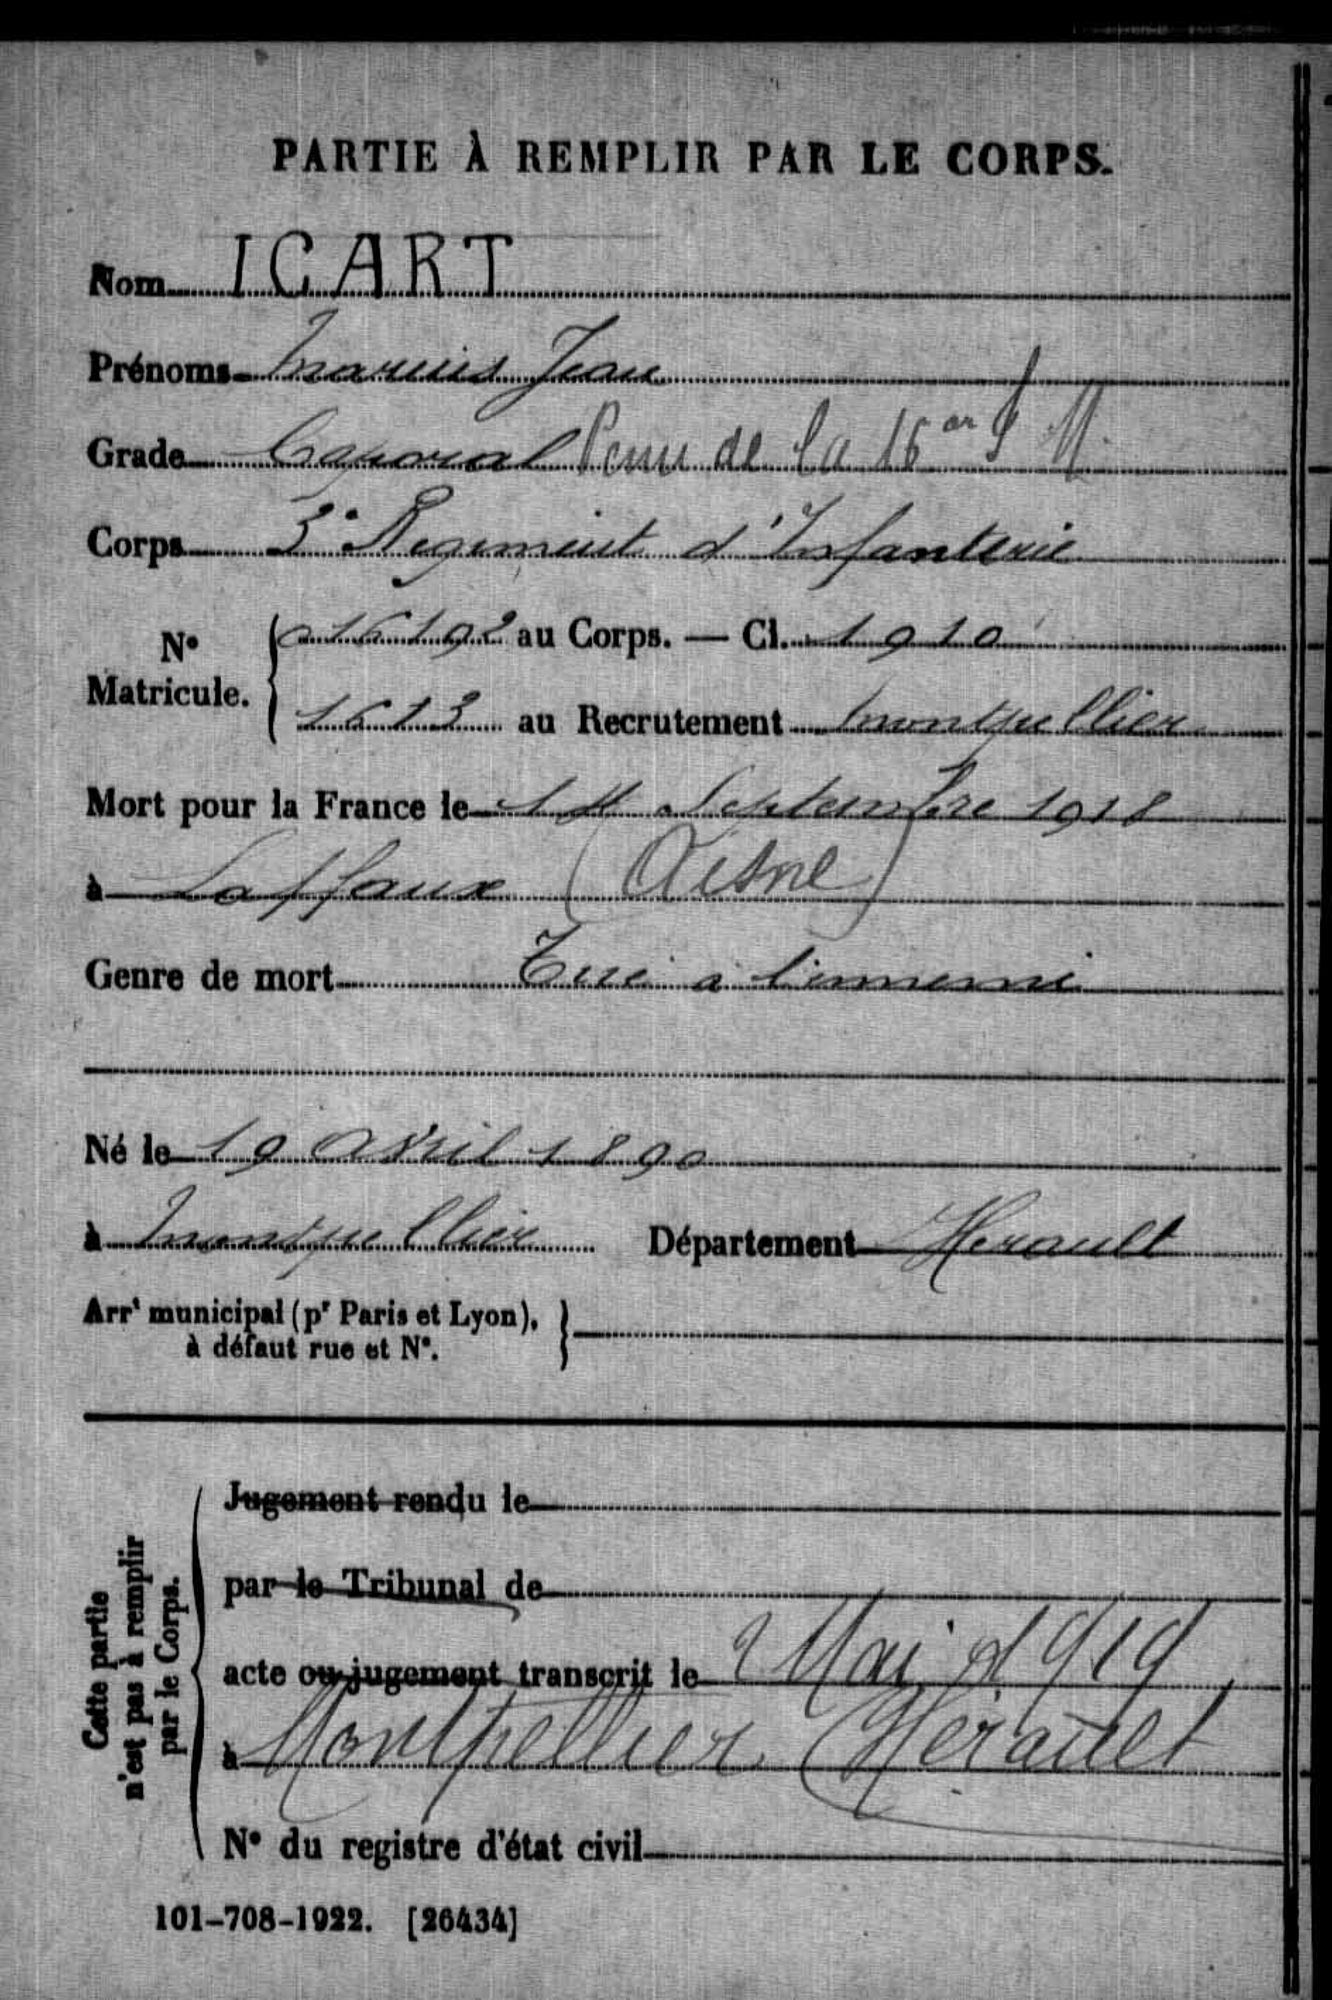 PARTIE À REMPLIR PAR LE CORPS.
Nom ICART
Prénoms Marius Jean
Grade Caporal Venu de la 16
Corps 3e Regiment d'Infanterie
No Matricule. { 016192 au Corps. — Cl. 1910
1613 au Recrutement Montpellier
Mort pour la France le 14 Septembre 1918
à Laffaux (Aisne)
Genre de mort Tué a l'ennemi
Né le 19 Avril 1890
à Montpellier Département Herault
Arrt municipal (pr Paris et Lyon), }
à défaut rue et No.
Cette partie
n'est pas à remplir
par le Corps.
Jugement rendu le
par le Tribunal de
acte ou jugement transcrit le 9 Mai 1919
à Montpellier (Hérault
No du registre d'état civil
101-708-1922. [26434]